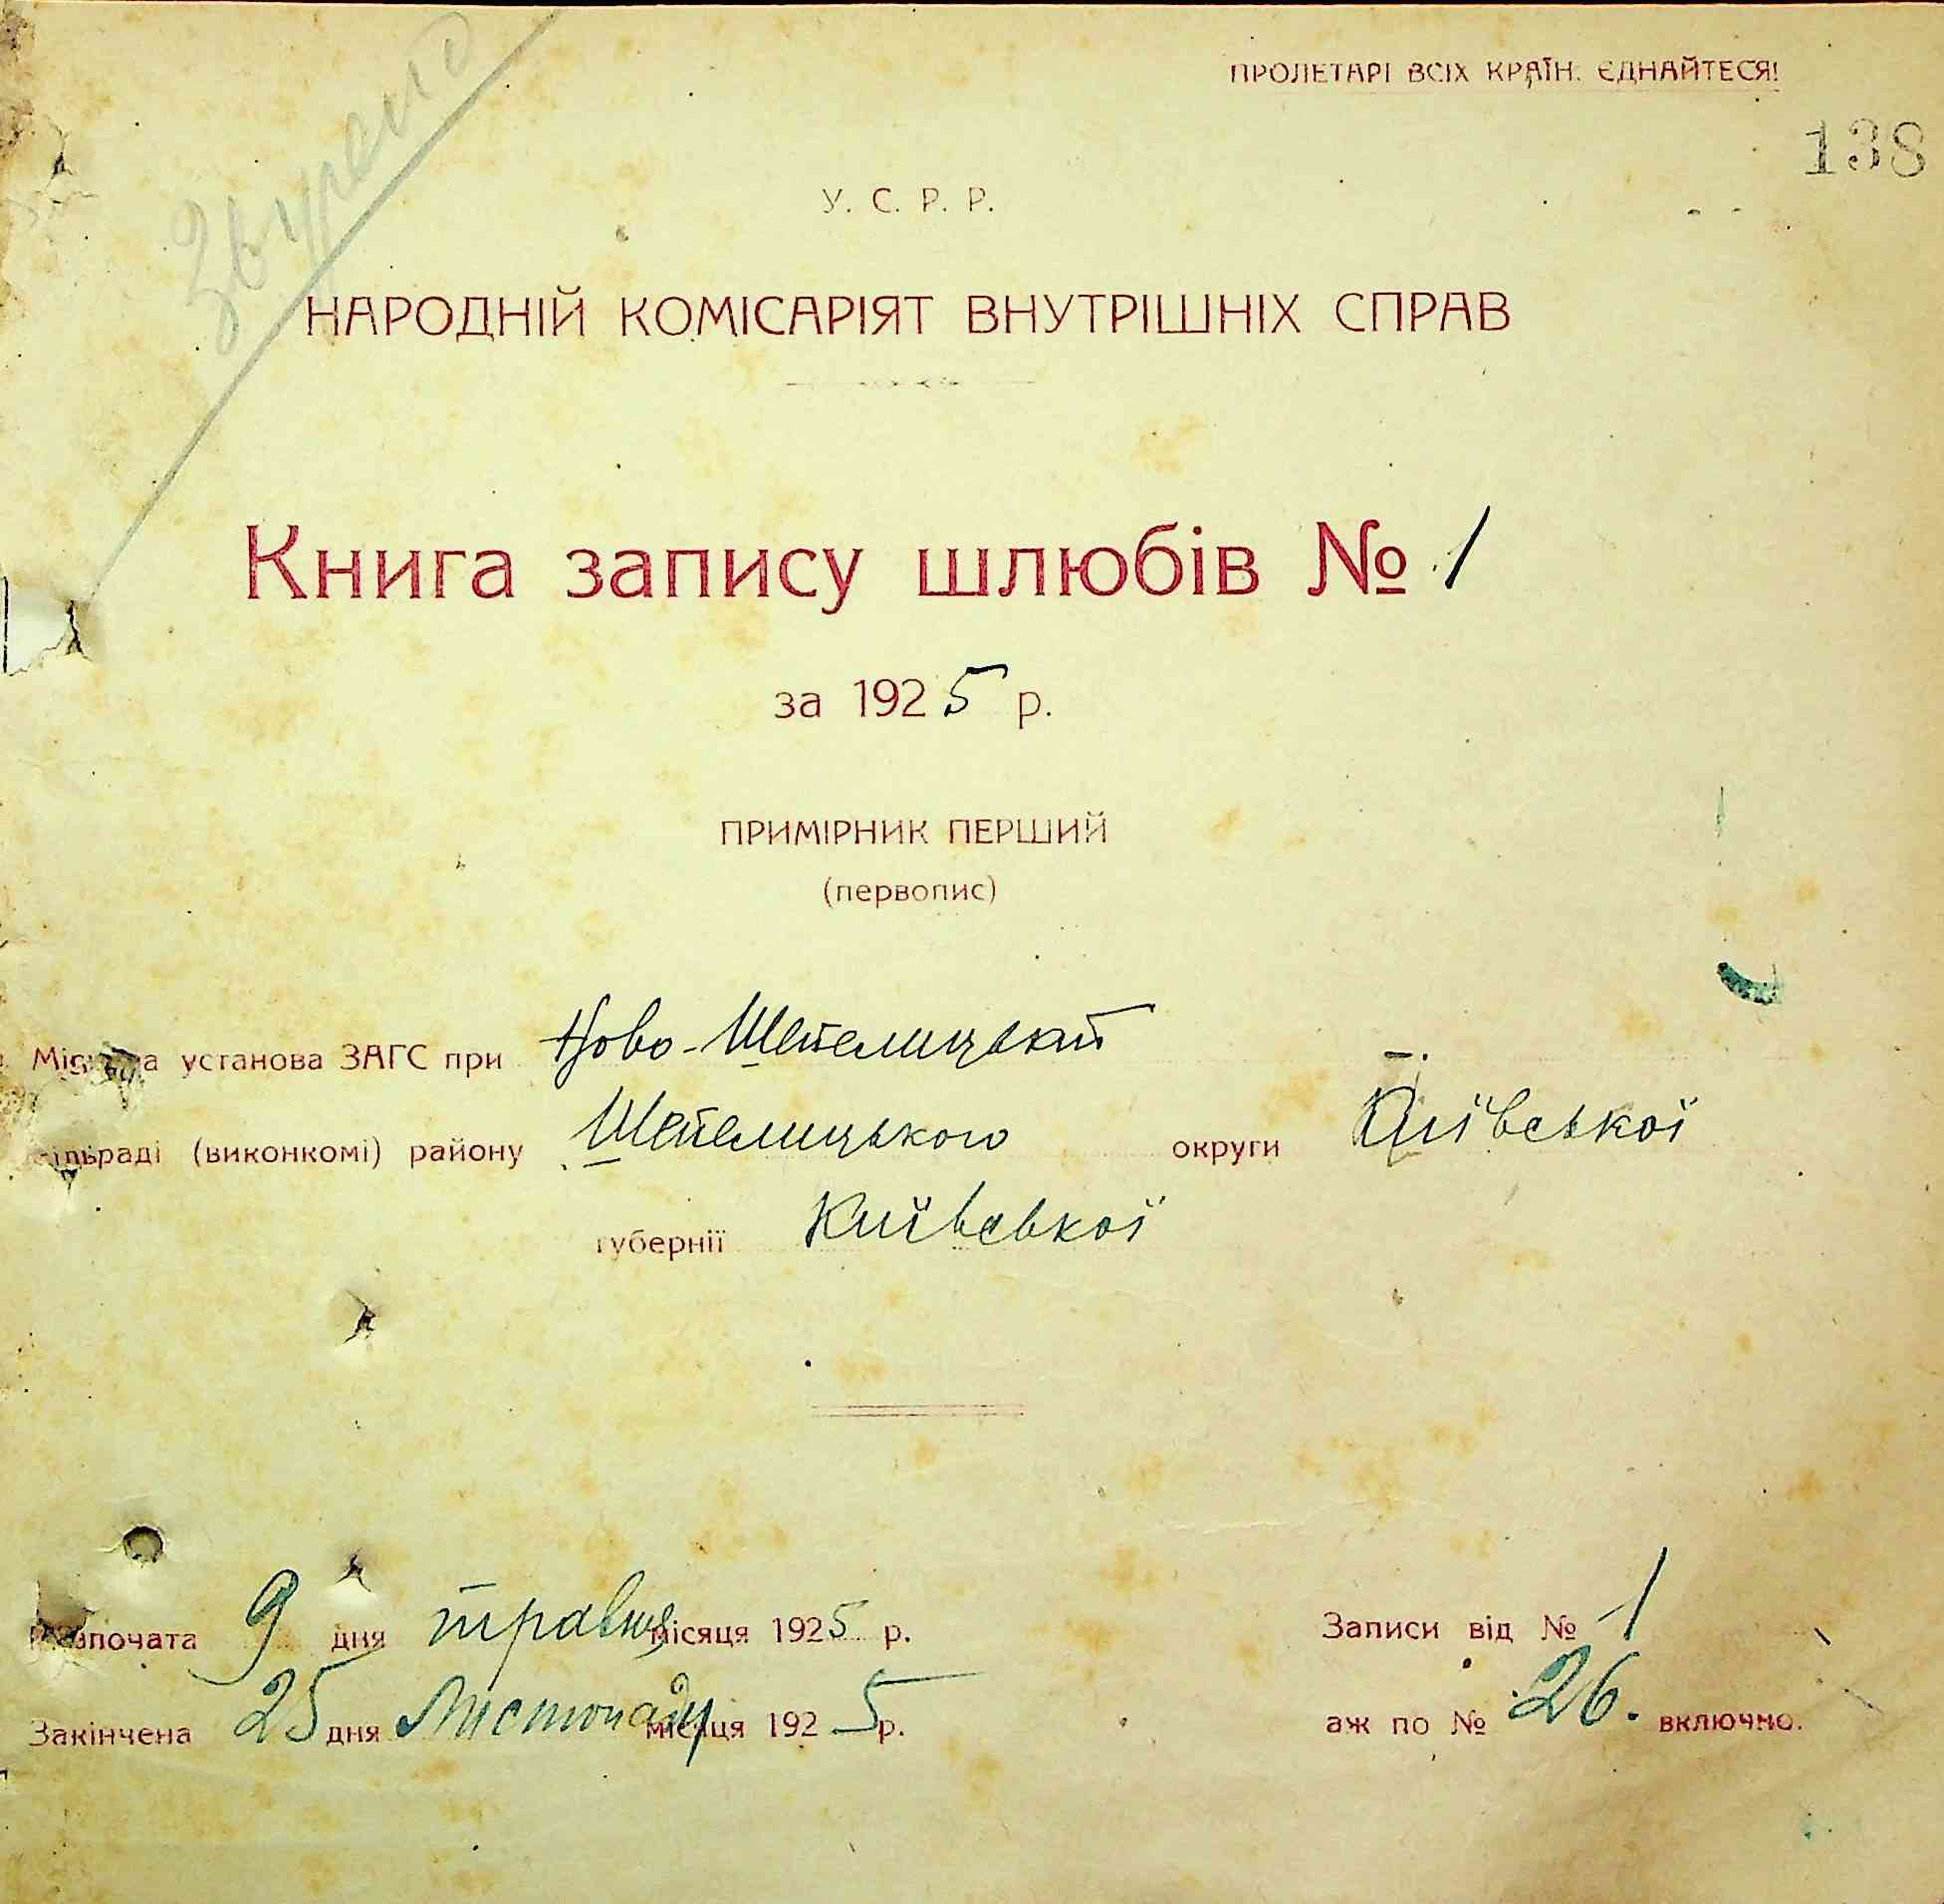 ПРОЛЕТАРІ ВСІХ КРАЇН, ЄДНАЙТЕСЯ!
138
У. С. Р. Р.
НАРОДНІЙ КОМІСАРІЯТ ВНУТРІШНІХ СПРАВ
Книга запису шлюбів № 1
за 1925 р.
ПРИМІРНИК ПЕРШИЙ
(первопис)
установа ЗАГС при Ново-Шепелицькій
(виконкомі) району Шепелицького округи Київської
губернії Київської
9 дня травня місяця 1925 р. Записи від № 1
Закінчена 25 дня Листопаду місяця 1925 р. аж по № 26. включно.